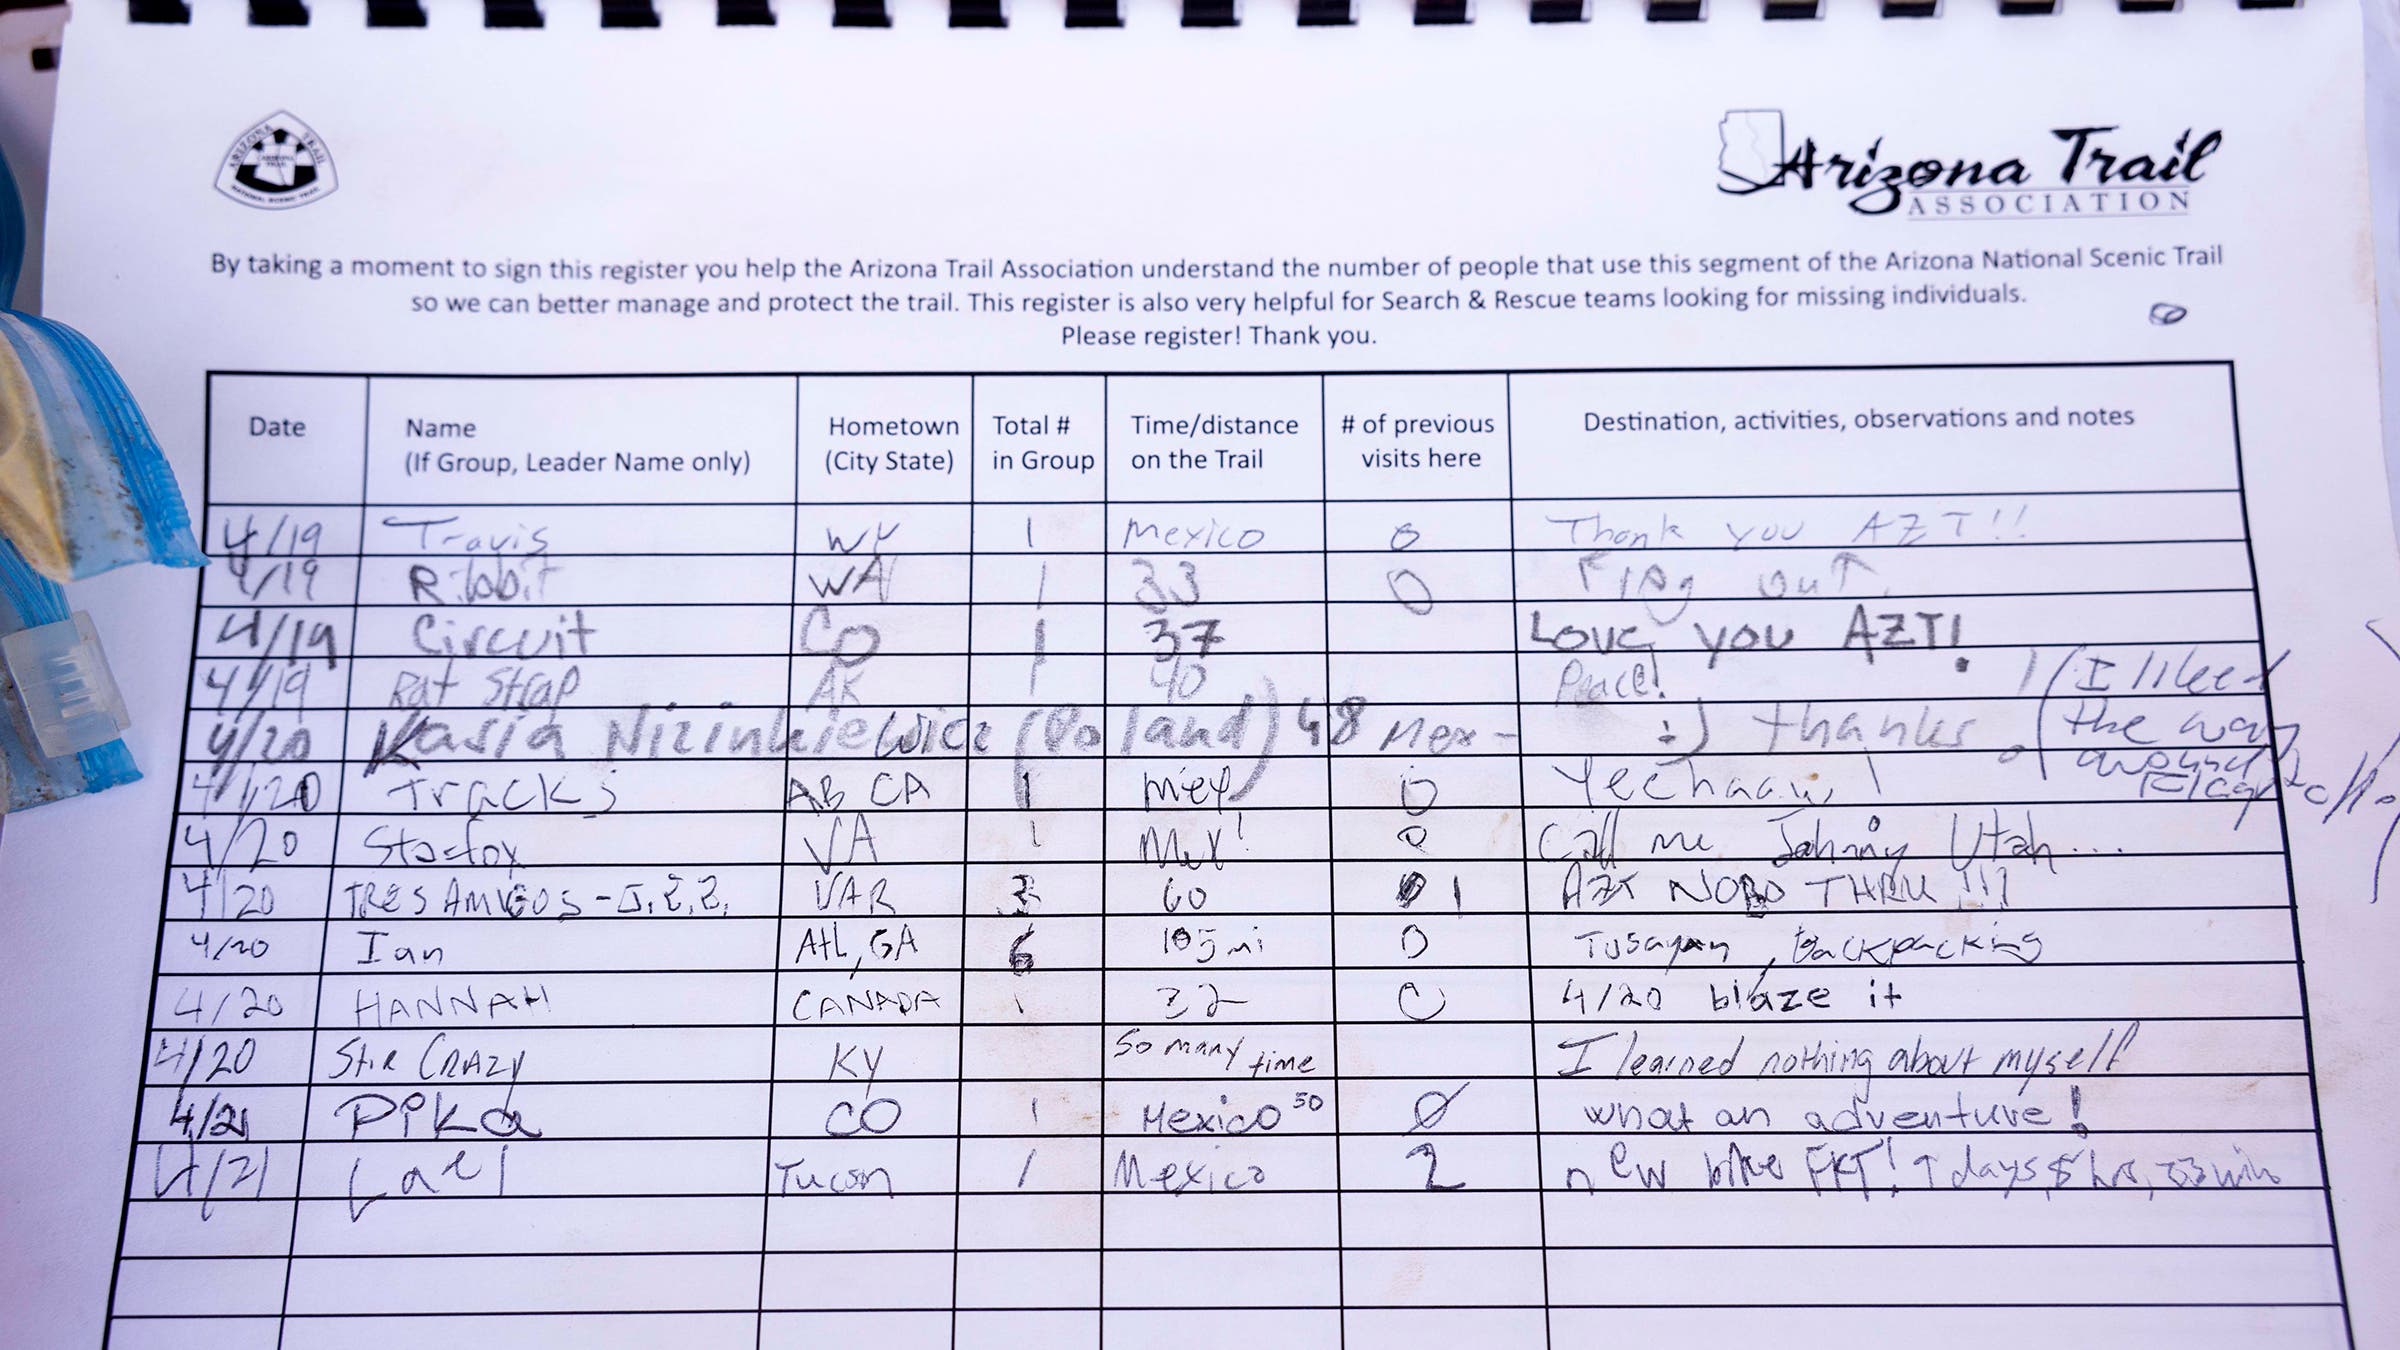 ARIZONA TRAIL
ARIZONA TRAIL
NATIONAL SCENIC TRAIL
Arizona Trail
ASSOCIATION
By taking a moment to sign this register you help the Arizona Trail Association understand the number of people that use this segment of the Arizona National Scenic Trail
so we can better manage and protect the trail. This register is also very helpful for Search & Rescue teams looking for missing individuals.
Please register! Thank you.
Date Name (If Group, Leader Name only) Hometown (City State) Total # in Group Time/distance on the Trail # of previous visits here Destination, activities, observations and notes
4/19 Travis WY 1 Mexico 0 Thank you AZT!!
4/19 Ribbit WA 1 33 0 Flag out
4/19 Circuit CO 1 37 Love you AZT!
4/19 Rat Strap AK 1 40 Peace!
4/20 Kasia Nizinkiewicz (Poland) 48 Mex- :) thanks (I liked the way around Flag
4/20 Tracks AB CA 1 Mex 0 Yeehaaw!
4/20 Starfox VA 1 Mex! 0 Call me Johnny Utah....
4/20 TRES AMIGOS - VAR 3 60 1 AZT NOBO THRU!!!
4/20 Ian Atl, GA 6 105 mi 0 Tusayan, Backpacking
4/20 HANNAH CANADA 1 32 0 4/20 blaze it
4/20 Stir CRAZY KY So many time I learned nothing about myself
4/21 Pika CO 1 Mexico 50 0 what an adventure!
4/21 Lael Tucson 1 Mexico 2 new bike FKT! days, hrs, 33 min